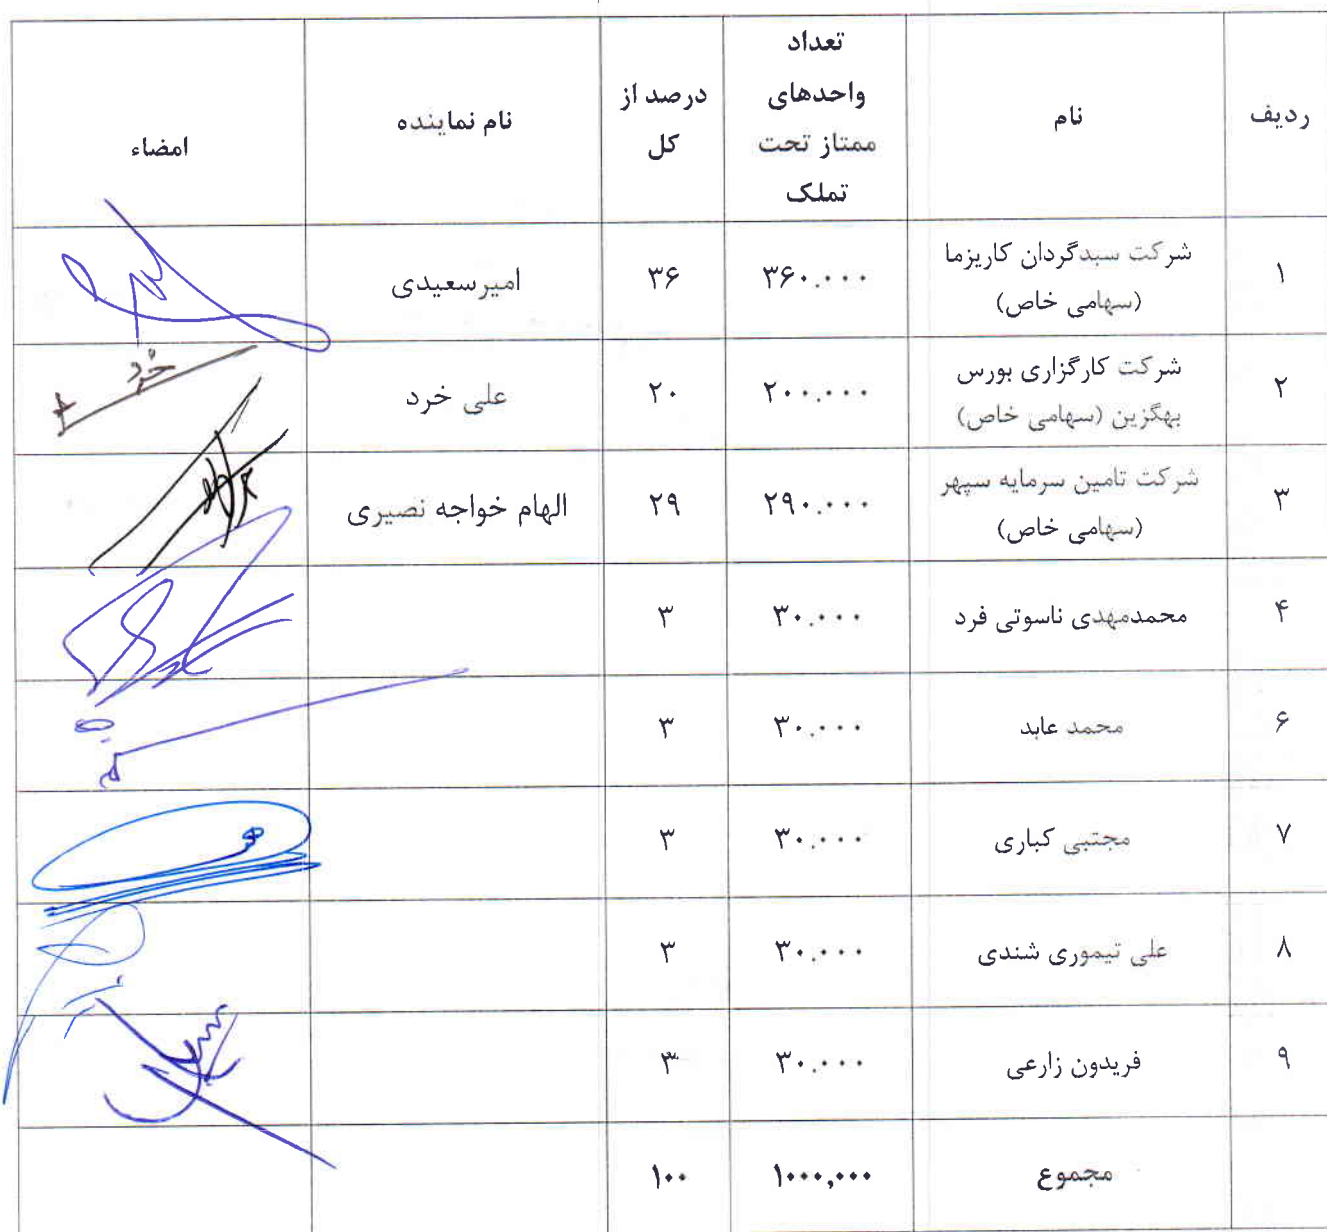 ردیف
نام
تعداد
واحدهای
ممتاز تحت
تملک
درصد از
کل
نام نماینده
امضاء
۱
شرکت سبدگردان کاریزما
(سهامی خاص)
۳۶۰.۰۰۰
۳۶
امیرسعیدی
۲
شرکت کارگزاری بورس
بهگزین (سهامی خاص)
۲۰۰.۰۰۰
۲۰
علی خرد
خرد
۳
شرکت تامین سرمایه سپهر
(سهامی خاص)
۲۹۰.۰۰۰
۲۹
الهام خواجه نصیری
۴
محمدمهدی ناسوتی فرد
۳۰.۰۰۰
۳
۶
محمد عابد
۳۰.۰۰۰
۳
۷
مجتبی کباری
۳۰.۰۰۰
۳
۸
علی تیموری شندی
۳۰.۰۰۰
۳
۹
فریدون زارعی
۳۰.۰۰۰
۳
مجموع
۱۰۰۰,۰۰۰
۱۰۰